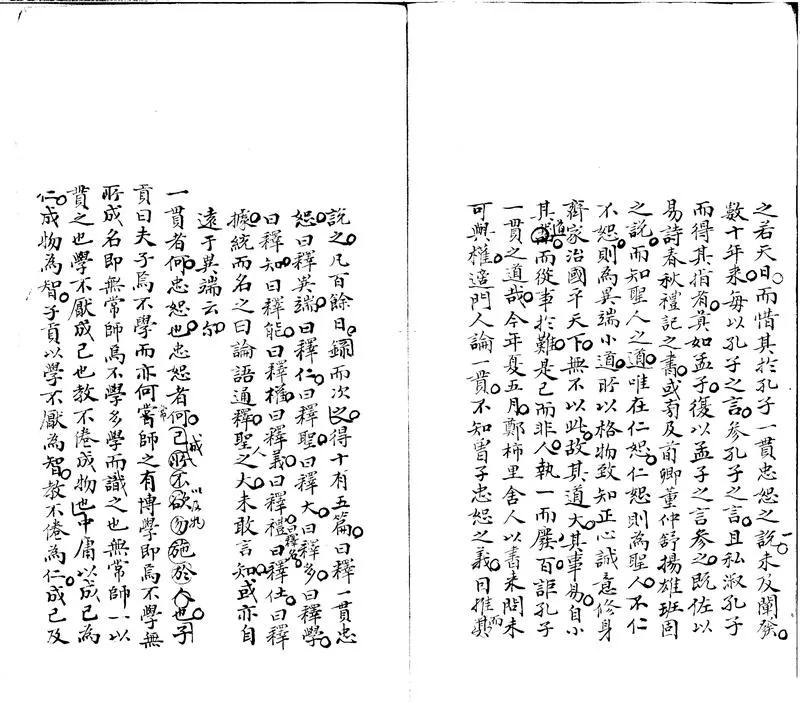 之若天日而惜其於孔子一貫忠恕之說未及闡發
數十年來每以孔子之言參孔子之言且私淑孔子
而得其指者莫如孟子復以孟子之言參之既佐以
易詩春秋禮記之書或旁及荀卿董仲舒揚雄班固
之說而知聖人之道唯在仁恕仁恕則為聖人不仁
不恕則為異端小道所以格物致知正心誠意修身
齊家治國平天下無不以此故其道大其事易自小
其道而從事於難是己而非人執一而廢百詎孔子
一貫之道哉今年夏五月鄭柿里舍人以書來問未
可與權適門人論一貫不知曾子忠恕之義因推其
說之凡百餘日錄而次之得十有五篇曰釋一貫忠
恕曰釋異端曰釋仁曰釋聖曰釋大曰釋多曰釋學
曰釋知曰釋能曰釋權曰釋義曰釋禮曰釋仕曰釋
據統而名之曰論語通釋聖人之大未敢言知或亦自
遠于異端云爾
一貫者何忠恕也忠恕者何己所不欲勿施於人也子
貢曰夫子焉不學而亦何常師之有博學即焉不學無
所成名即無常師焉不學多學而識之也無常師一以
貫之也學不厭成己也教不倦成物也中庸以成己為
仁成物為智子貢以學不厭為智教不倦為仁成己及